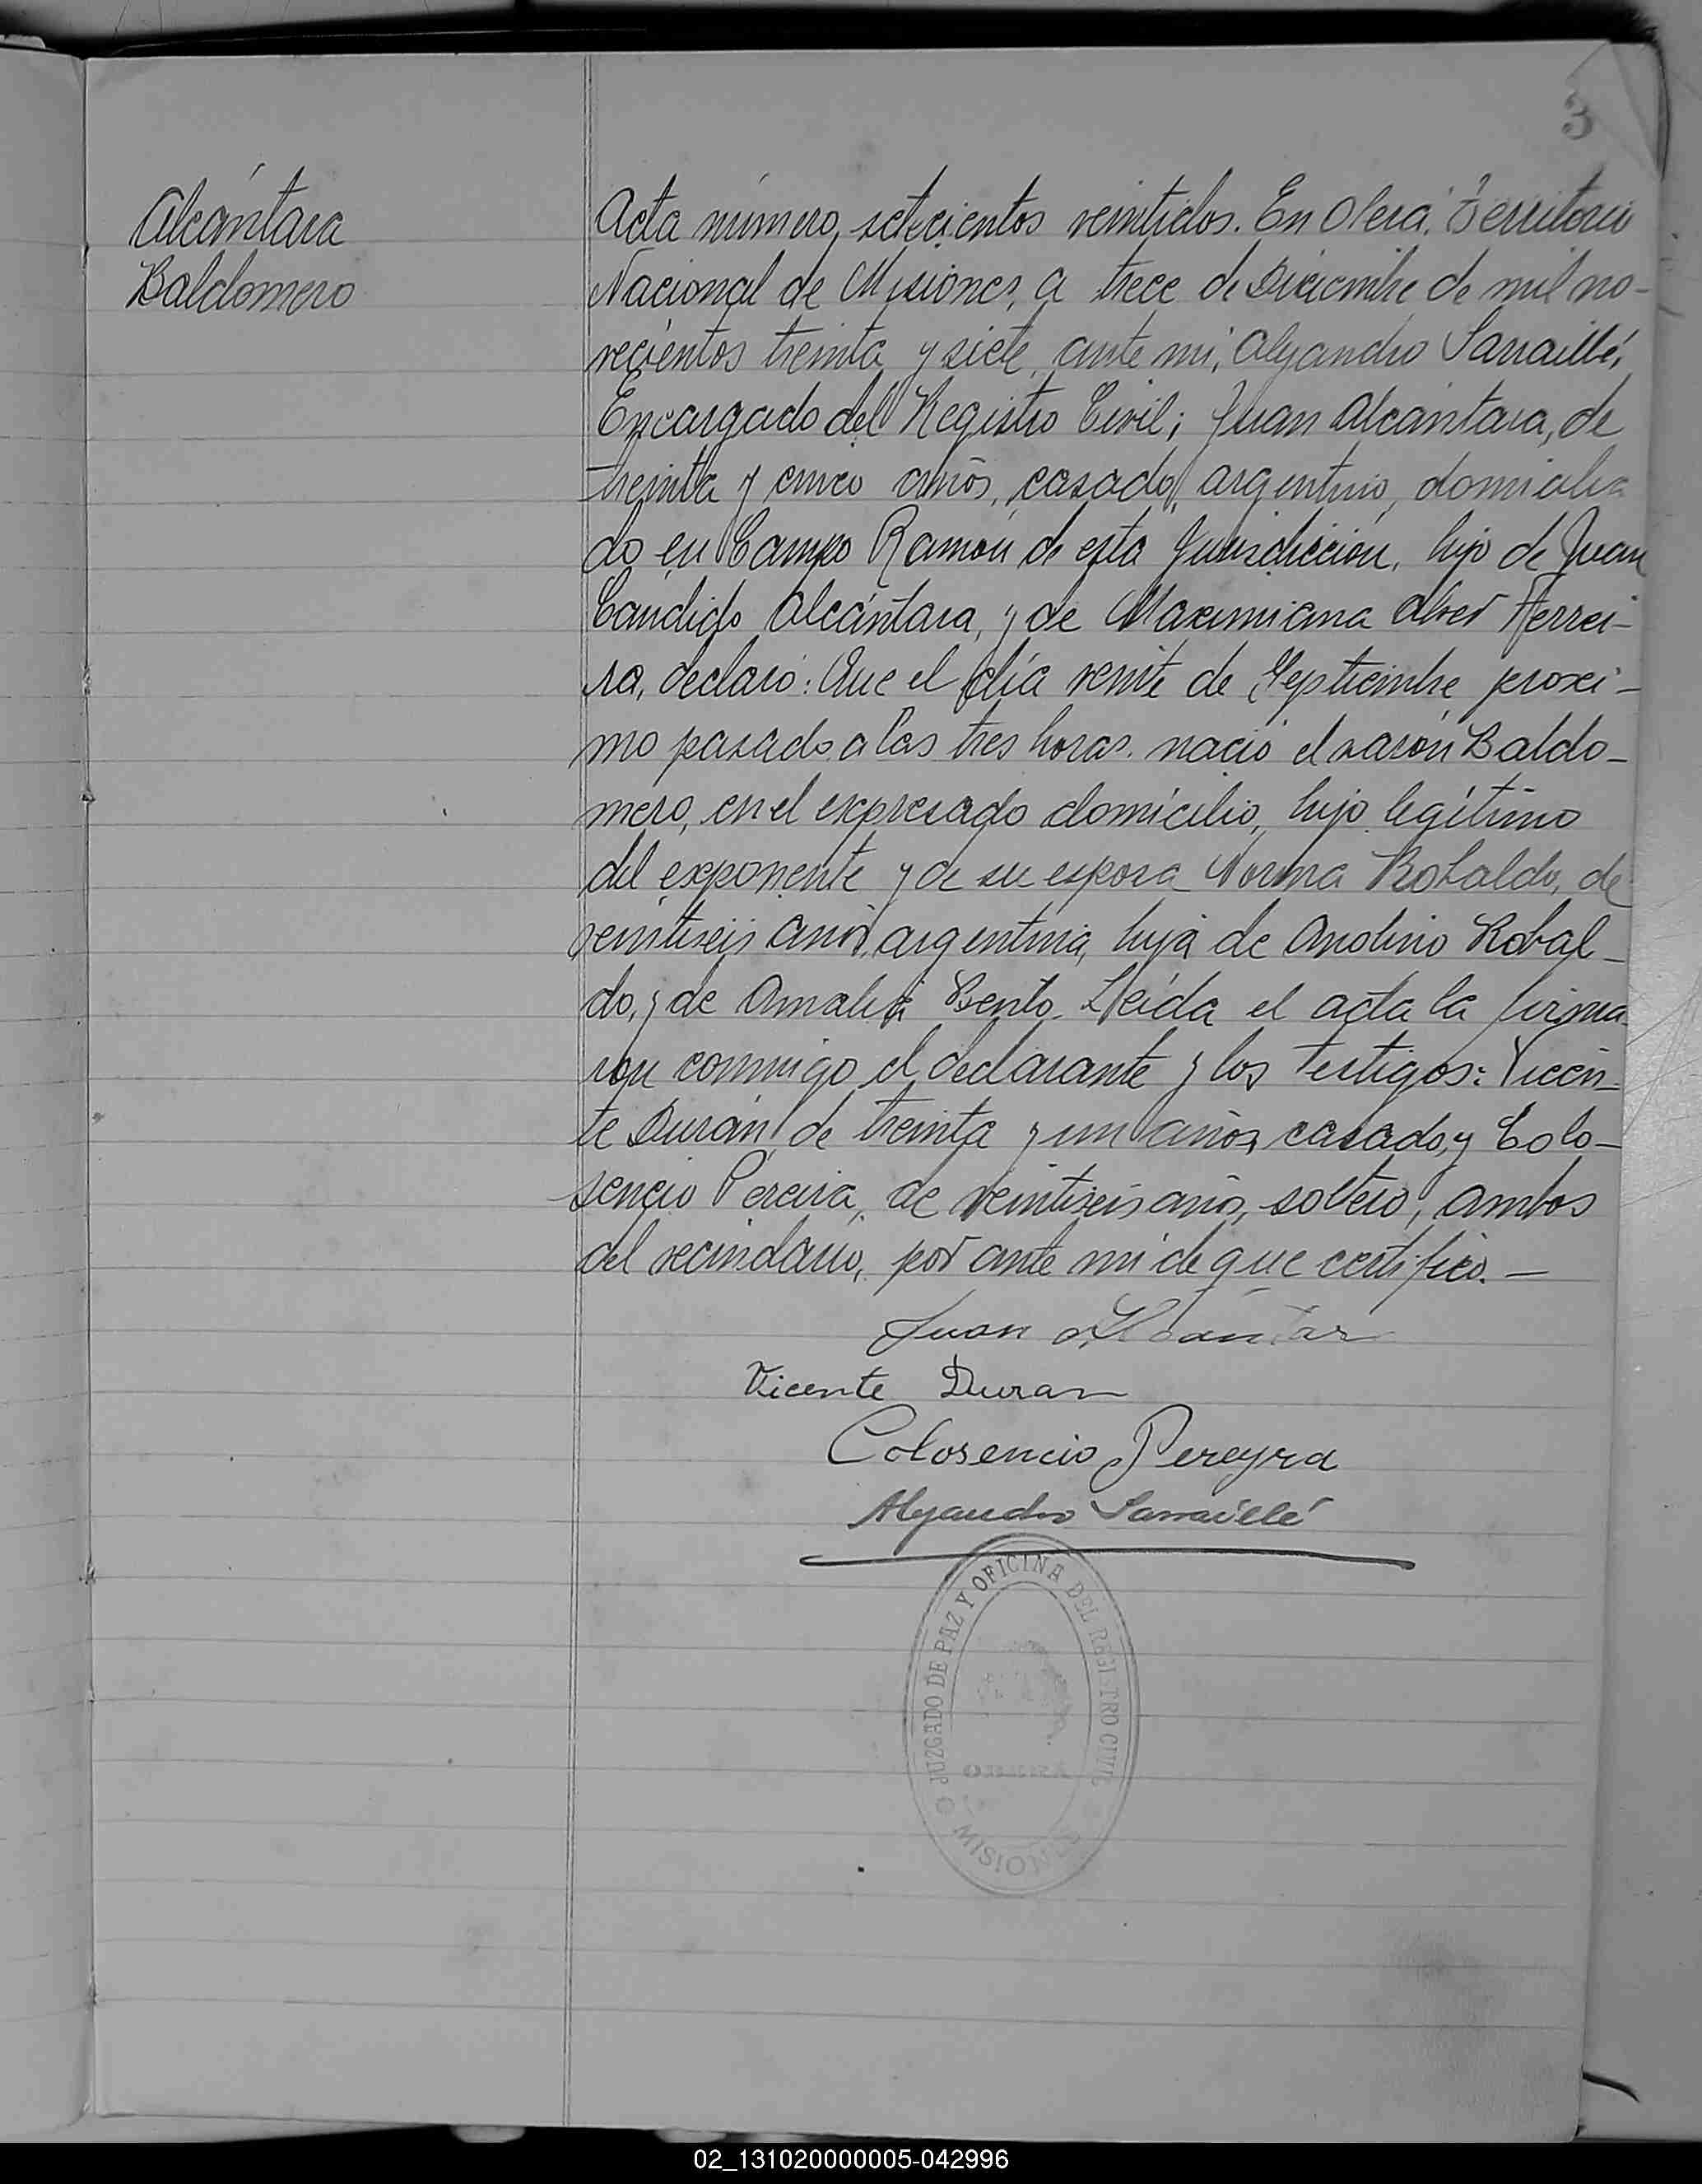 3
Alcántara
Baldomero
Acta número, setecientos veintidos. En Oberá, Territorio
Nacional de Misiones, a trece de Diciembre de mil no-
vecientos treinta y siete, ante mi, Alejandro Sarraillé,
Encargado del Registro Civil; Juan Alcántara, de
treinta y cinco años, casado, argentino, domicilia
do en Campo Ramón de esta Jurisdicción, hijo de Juan
Candido Alcántara, y de Maximiana Alves Ferrei-
ra, declaró: Que el día veinte de Septiembre proxi-
mo pasado a las tres horas nació el varón Baldo-
mero, en el expresado domicilio, hijo legítimo
del exponente y de su esposa Norma Robaldo, de
veintiseis años, argentina, hija de Robal-
do, y de Amalia Bento. Leída el acta la firma
ron conmigo el declarante y los testigos: Vicen-
te Durán, de treinta y un años, casado, y Colo-
sencio Pereira, de veintiseis años, soltero, ambos
del vecindario, por ante mi de que certifico. —
Juan Alcantar
Vicente Duran
Colosencio Pereyra
Alejandro Sarraillé
JUZGADO DE PAZ Y OFICINA DEL REGISTRO CIVIL
MISIONES
02_131020000005-042996